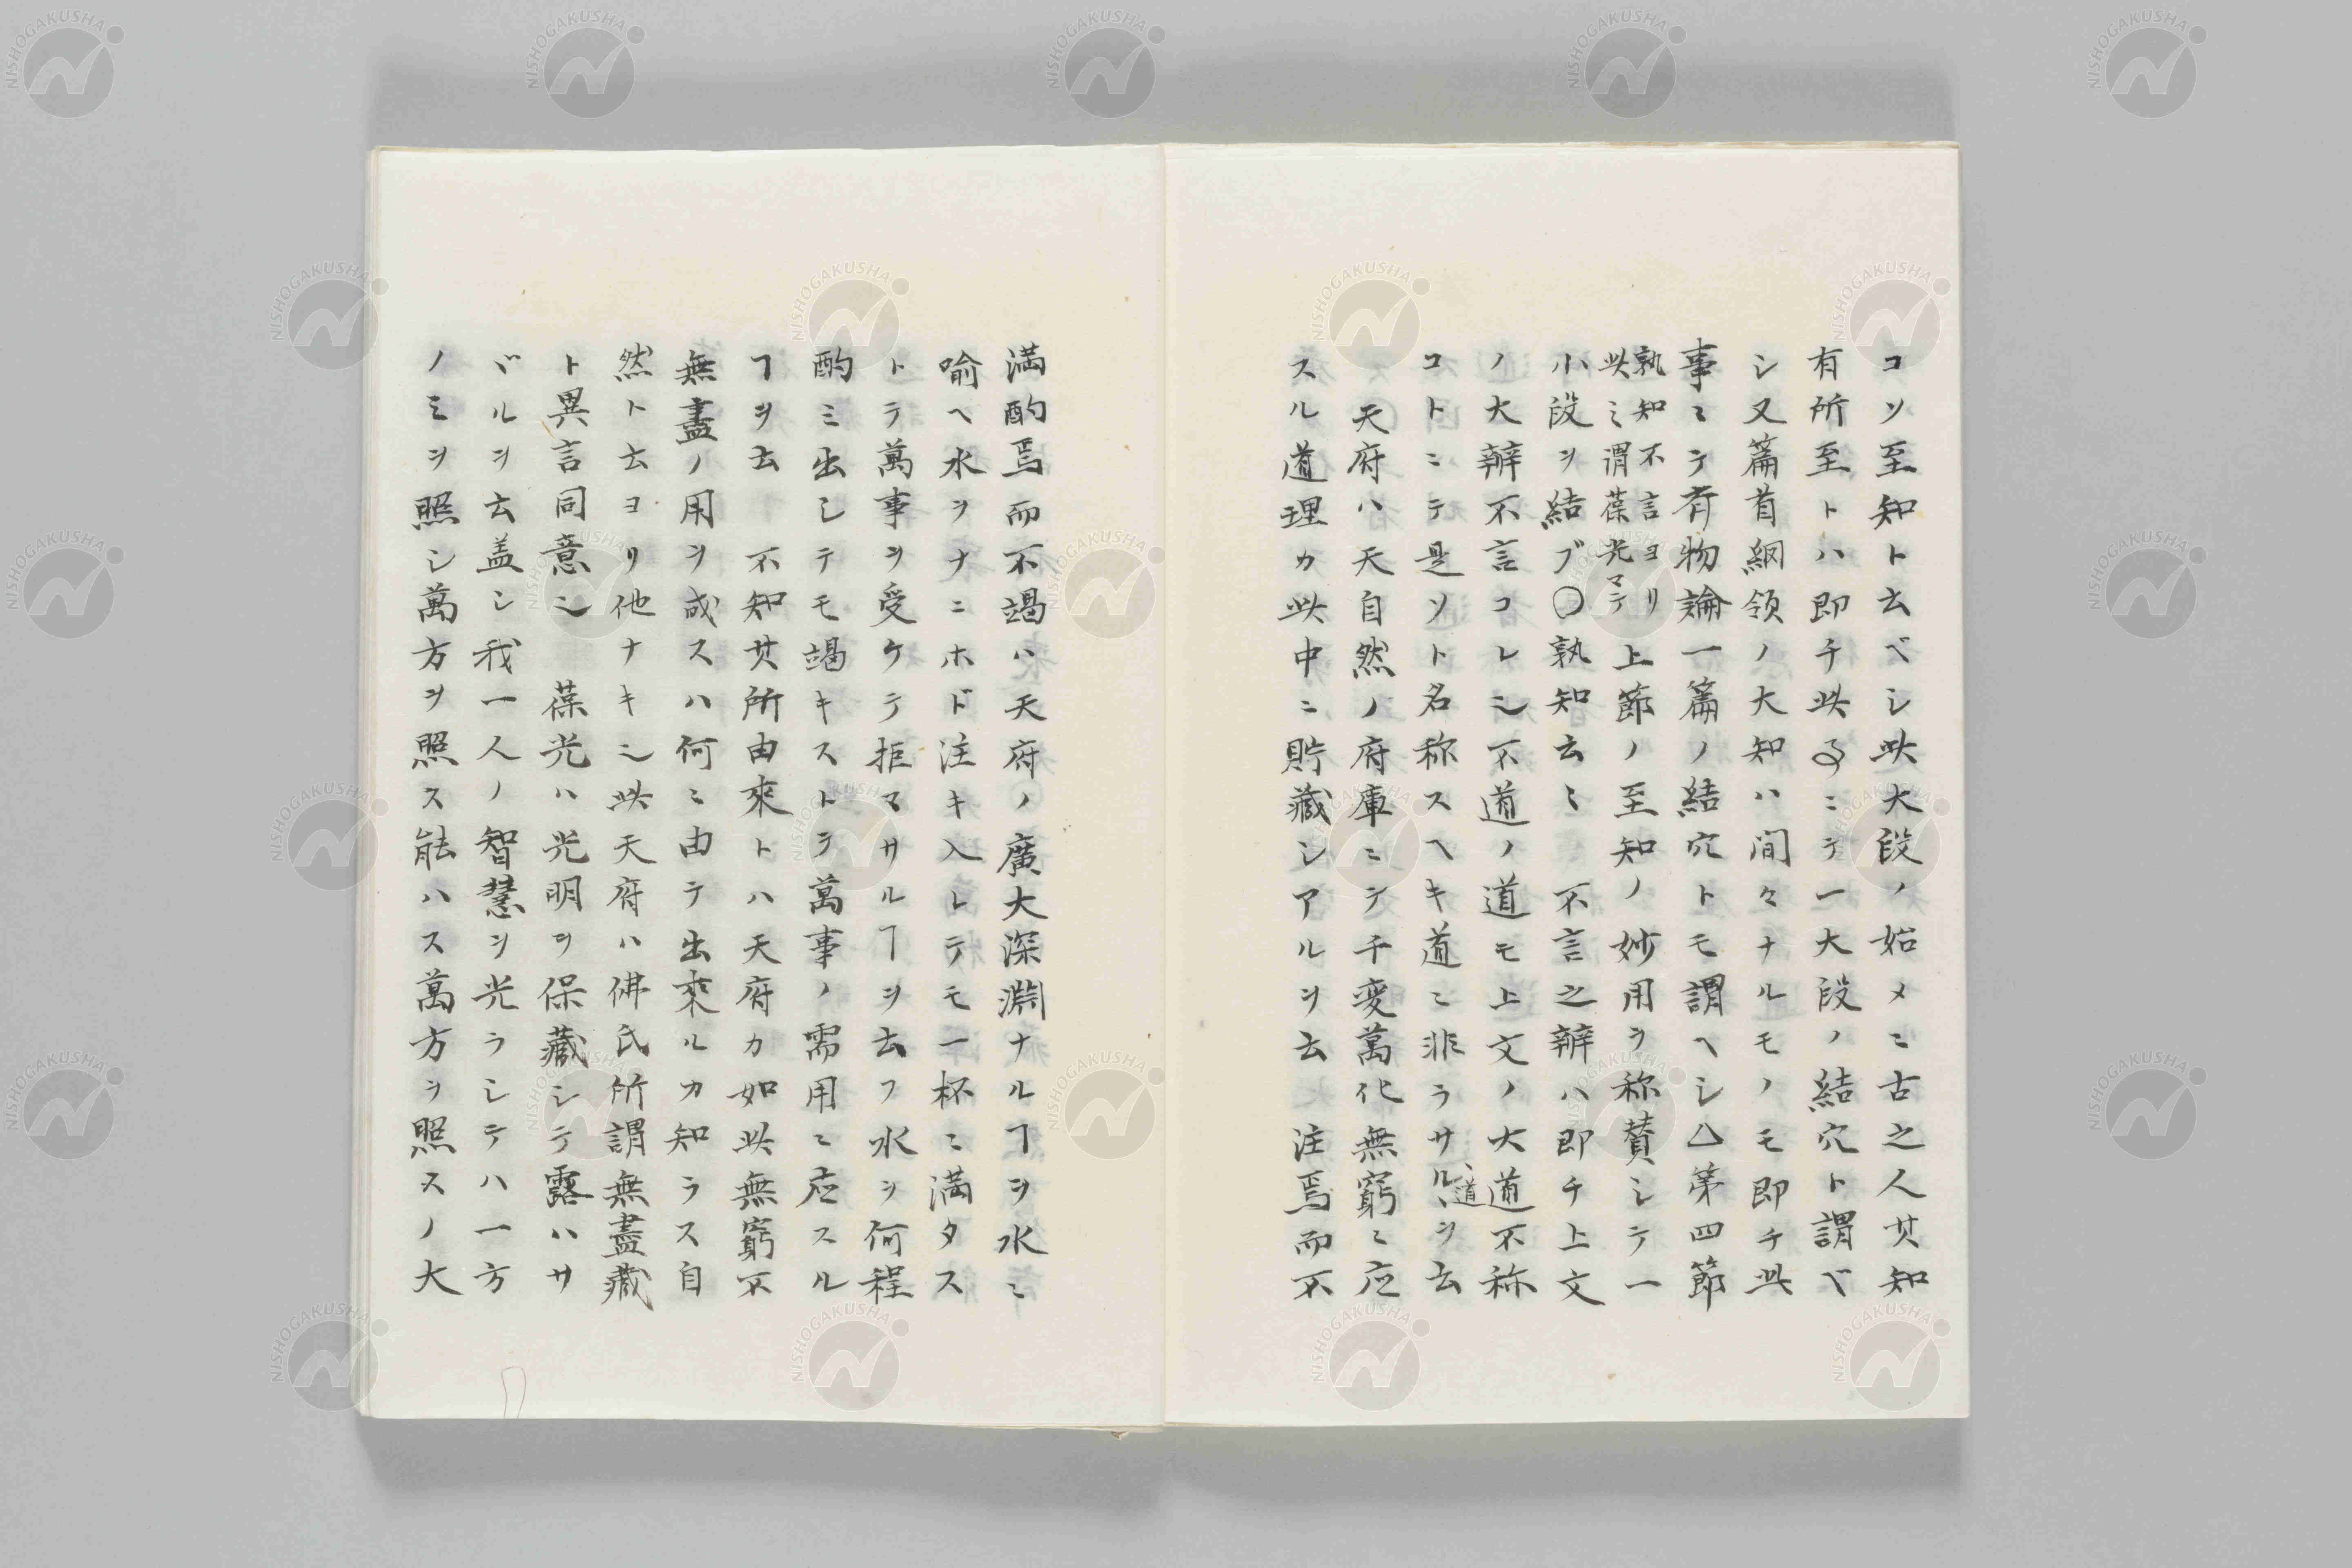 コソ至知ト云ベシ此大段ノ始メニ古之人其知
有所至トハ即チ此事ニテ一大段ノ結穴ト謂ベ
シ又篇首綱領ノ大知ハ間々ナルモノモ即チ此
事ニテ斉物論一篇ノ結穴トモ謂ヘシ△第四節
孰知不言ヨリ
此之謂葆光マテ
上節ノ至知ノ妙用ヲ称賛シテ一
小段ヲ結ブ〇孰知云々 不言之辯ハ即チ上文
ノ大辯不言コレ也不道ノ道モ上文ノ大道不称
コトニテ是ソト名称スヘキ道ニ非ラサル道ヲ云
天府ハ天自然ノ府庫ニテ千変萬化無窮ニ应
スル道理カ此中ニ貯藏シアルヲ云 注焉而不
満酌焉而不竭ハ天府ノ廣大深淵ナルヿヲ水ニ
喻ヘ水ヲナニホド注キ入レテモ一杯ニ満タス
トテ萬事ヲ受ケテ拒マサルヿヲ云フ水ヲ何程
酌ミ出シテモ竭キストテ萬事ノ需用ニ应スル
ヿヲ云 不知其所由來トハ天府カ如此無窮不
無盡ノ用ヲ成スハ何ニ由テ出來ルカ知ラス自
然ト云ヨリ他ナキ也此天府ハ佛氏所謂無盡藏
ト異言同意也 葆光ハ光明ヲ保藏シテ露ハサ
ザルヲ云盖シ我一人ノ智慧ヲ光ラシテハ一方
ノミヲ照シ萬方ヲ照ス能ハス萬方ヲ照スノ大
NISHOGAKUSHA